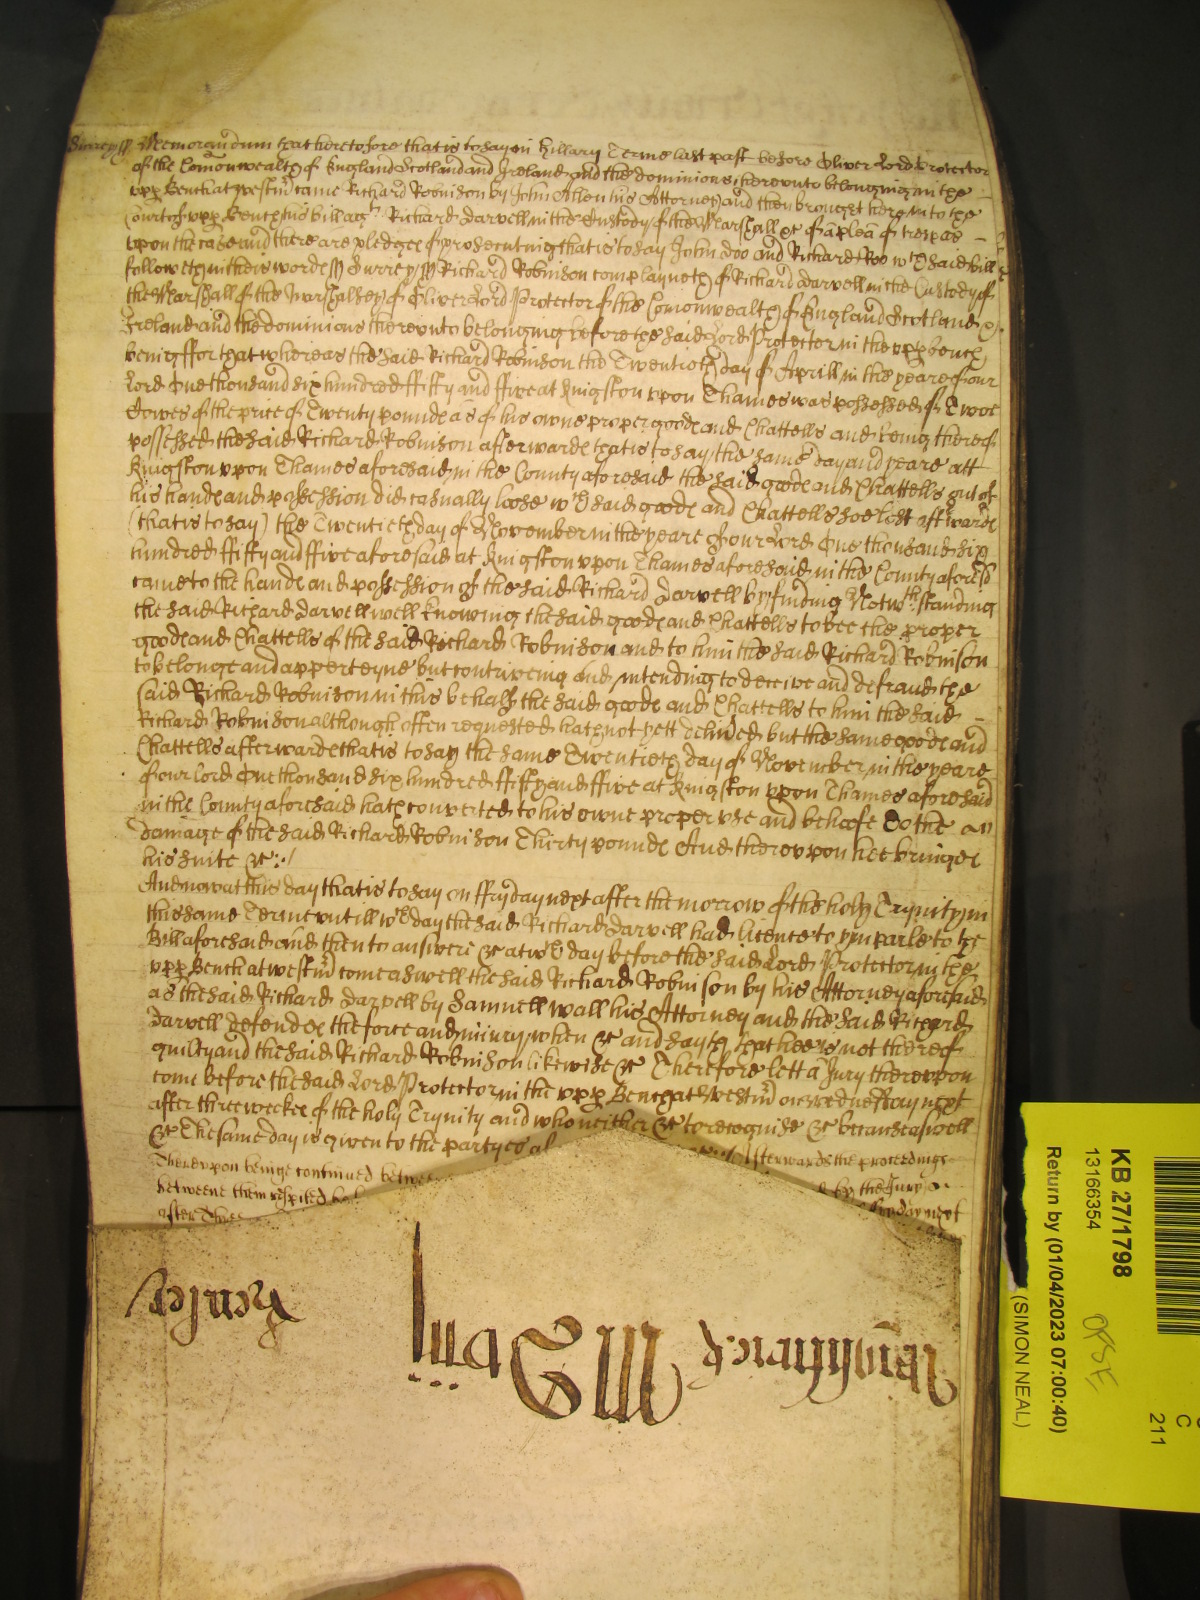 Surrey ss Memorandum that heretofore that is to say in Hillary Terme last past before Oliver Lord Protector
of the Comonwealth of England Scotland and Ireland and the dominions thereunto belonging in the
upp Bench at Westm came Richard Robinson by John Allen his Attorney and then brought here into the
Court of upp Bench his bill agt Richard Darvell in the Custody of the Marshall &c of a plea of trespas
upon the case and there are pledges of prosecuting that is to say John Doo and Richard Roo wch said bill
followeth in theis wordes ss Surrey ss Richard Robinson complayneth of Richard Darvell in the Custody of
the Marshall of the Marshalsey of Oliver Lord Protector of the Comonwealth of England Scotland &
Ireland and the dominions thereunto belonging before the said Lord Protector in the upp bench
being ffor that whereas the said Richard Robinson the Twentieth day of Aprill in the yeare of our
Lord One thousand six hundred ffifty and ffive at Kingston upon Thames was possessed of Twoe
Cowes of the price of Twenty pounde as of his owne proper goode and Chattells and being thereof
possessed the said Richard Robinson afterwarde that is to say the same day and yeare att
Kingston upon Thames aforesaid in the County aforesaid the said goode and Chattells out of
his hande and possession did casually loose wch said goode and Chattells soe lost aftwarde
(that is to say) the Twentieth day of November in the yeare of our Lord One thousand six
hundred ffifty and ffive aforesaid at Kingston upon Thames aforesaid in the County aforesd
came to the hande and possession of the said Richard Darvell by finding Notwthstanding
the said Richard Darvell well knowing the said goode and Chattells to bee the proper
goode and Chattells of the said Richard Robinson and to him the said Richard Robinson
to belonge and apperteyne but contriveing and intending to deceive and defraud the
said Richard Robinson in this behalf the said goode and Chattells to him the said
Richard Robinson although often requested hath not yett delived but the same goode and
Chattells afterwarde that is to say the same Twentieth day of November in the yeare
of our Lord One thousand six hundred ffifty and ffive at Kingston upon Thames aforesaid
in the County aforesaid hath converted to his owne proper use and behoofe To the
damage of the said Richard Robinson Thirty pounde And thereupon hee bringes
his suite &c
And now at this day that is to say on ffryday next after the morrow of the holy Trynity in
this same Terme untill wch day the said Richard Darvell had licence to imparle to the
Bill aforesaid and then to answere &c at wch day before the said Lord Protector in the
upp Bench at Westm come aswell the said Richard Robinson by his Attorney aforesaid
as the said Richard Darvell by Samuell Wall his Attorney and the said Richard
Darvell defendes the force and iniury when &c and sayth that hee is not thereof
guilty and the said Richard Robinson likewise &c Therefore lett a Jury thereupon
come before the said Lord Protector in the upp Bench att Westm on wednesday next
after three weekes of the holy Trynity and who neither &c to recognise &c because aswell
&c The same day is given to the partyes Afterwards the proceedings
Thereupon beinge continued betwee
betweene them respited by the Jury
after Three ffryday next
KB 27/1798
13166354
Return by (01/04/2023 07:00:40)
(SIMON NEAL)
OPSE
C
211